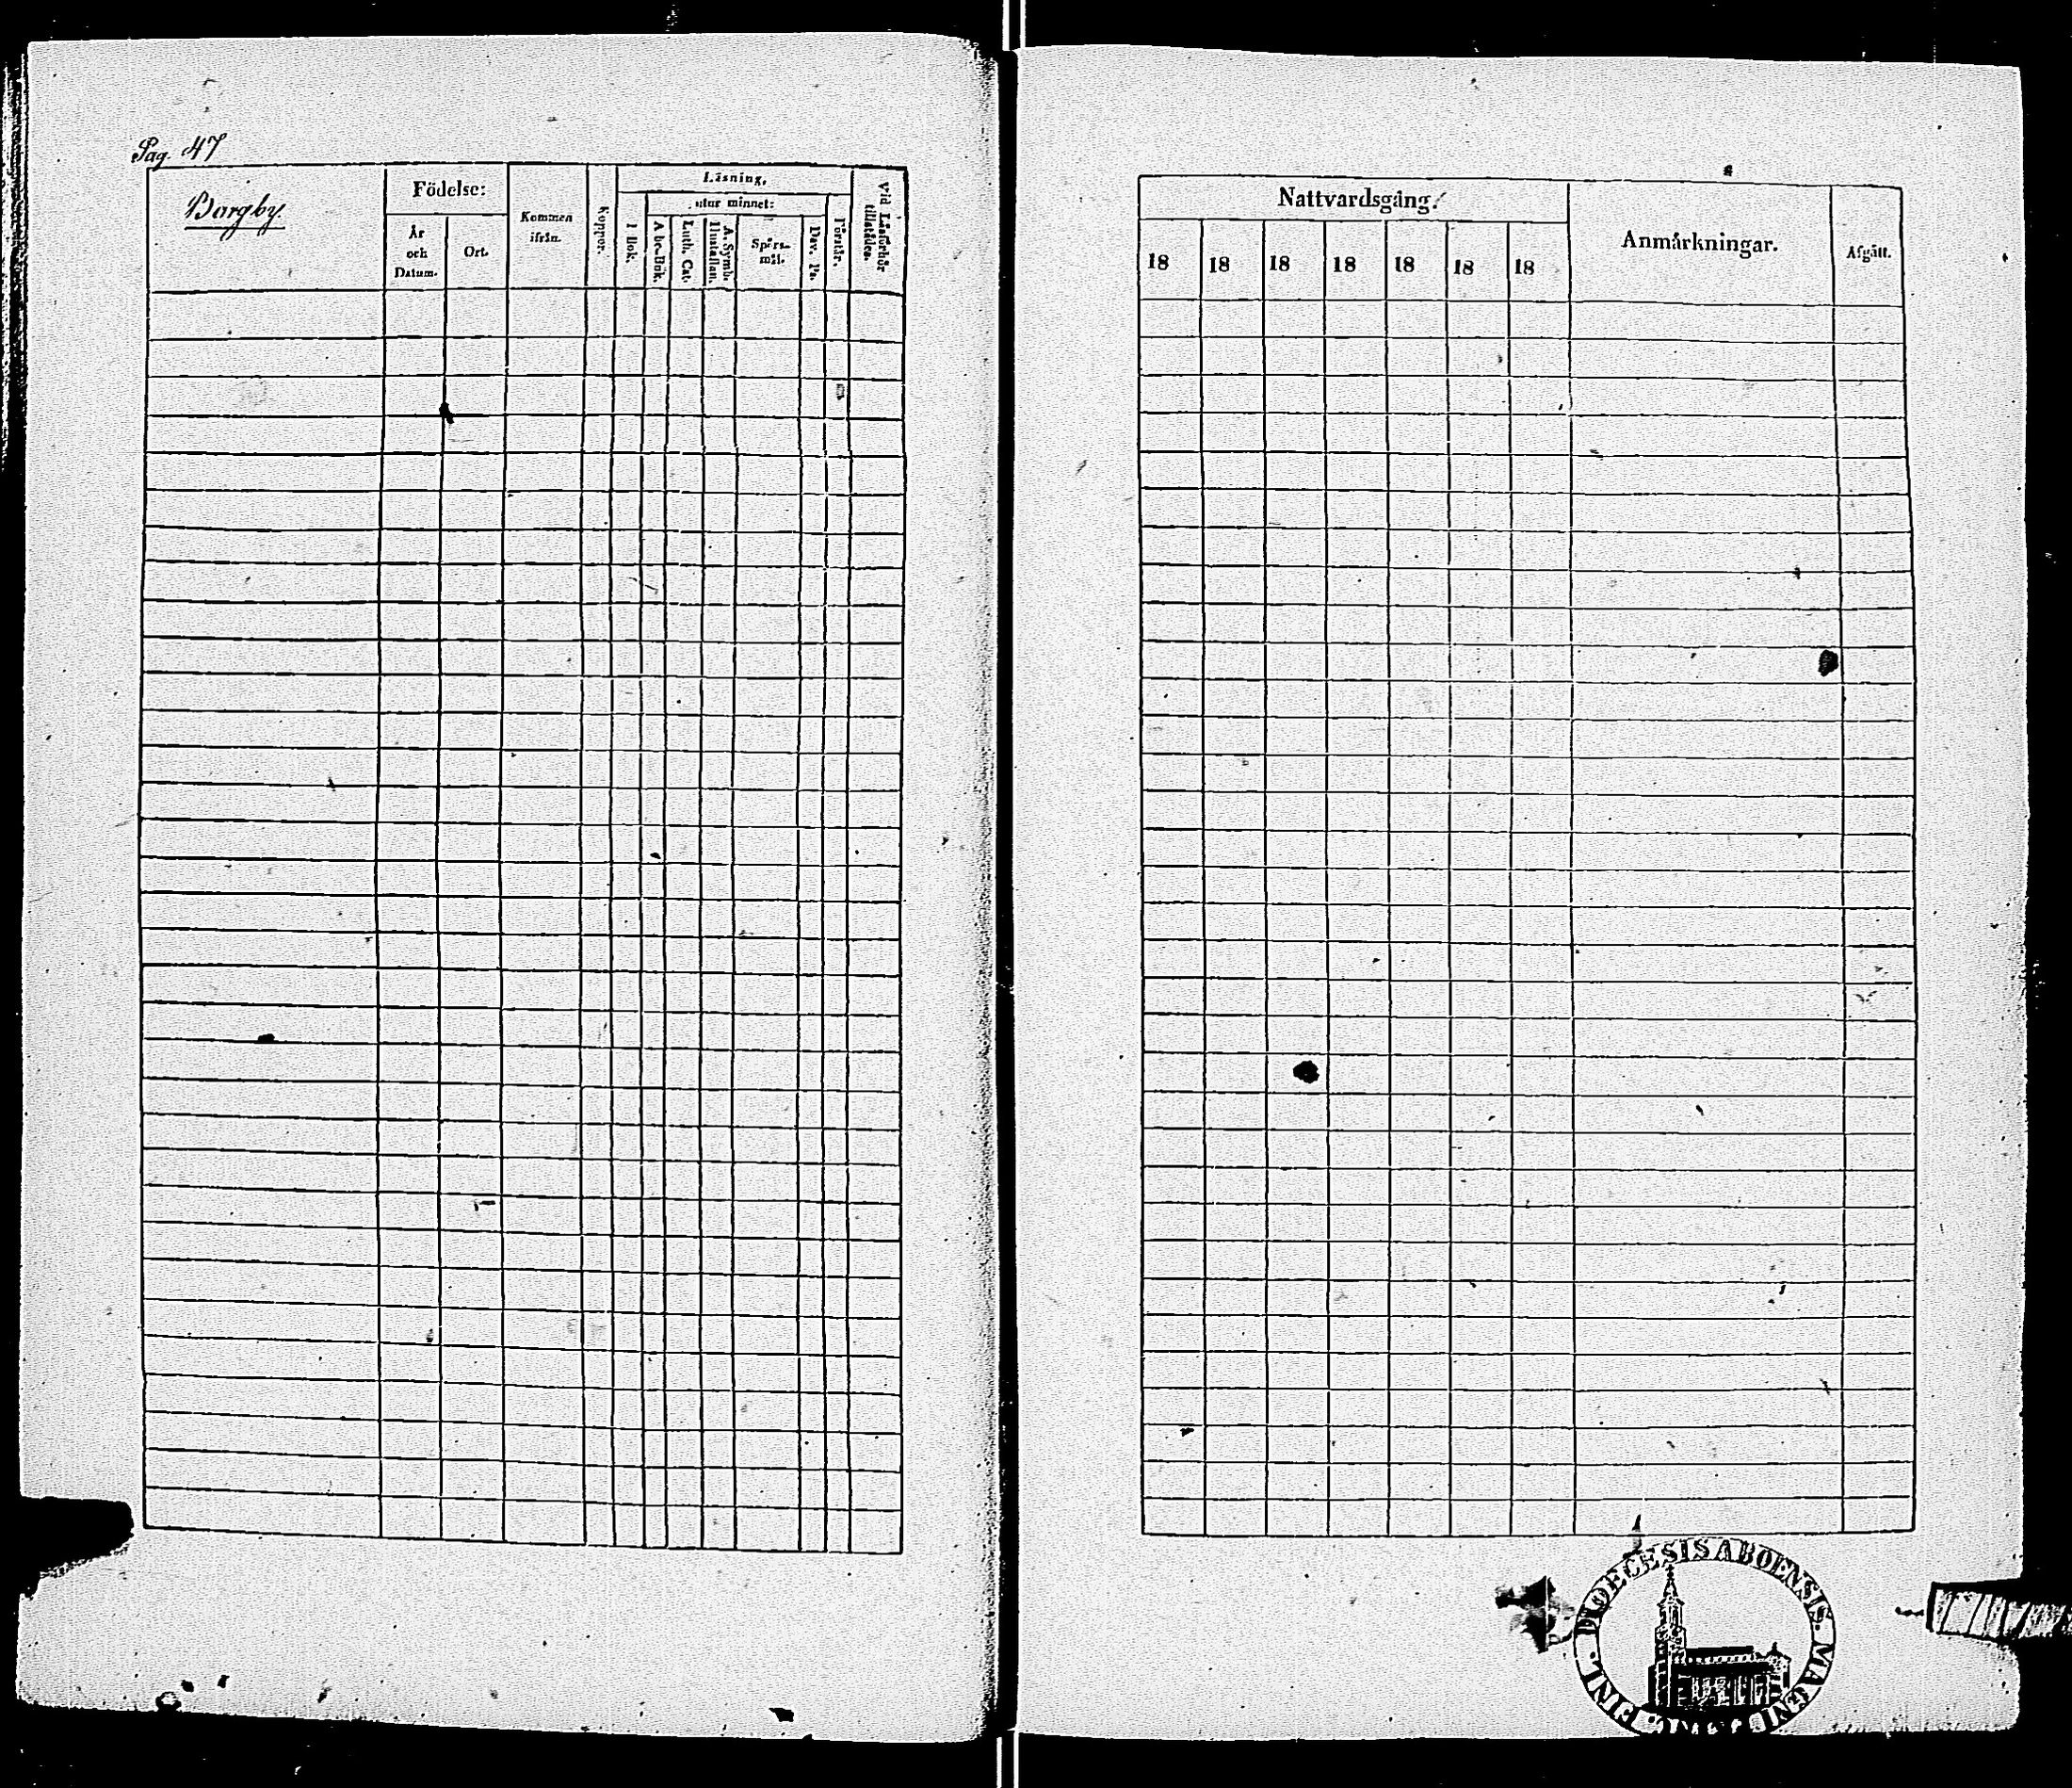 Pag. 47
Bargby.
Födelse:
År
och
Datum.
Ort.
Kommen
ifrån.
Koppor.
Läsning,
utur minnet:
I Bok.
Abc-Bok.
Luth. Cat.
A. Symb.
Hustaflan.
Spörs-
mål.
Dav. Ps.
Förstår.
Vid Läsförhör
tillstädes.
Nattvardsgång.
18 18 18 18 18 18 18
Anmärkningar.
Afgått.
DIOECESIS ABOENSIS. MAGNI
FINL.